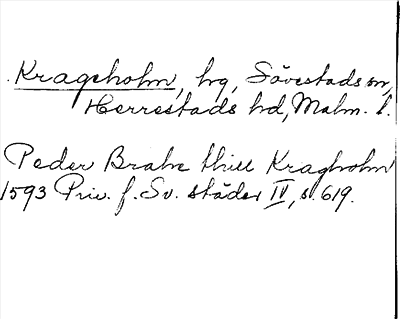 Krageholm, hg, Sövestads sn,
Herrestads hd, Malm. l.
Peder Brahe thill Kragholm
1593 Priv. f. Sv. städer IV, s. 619.